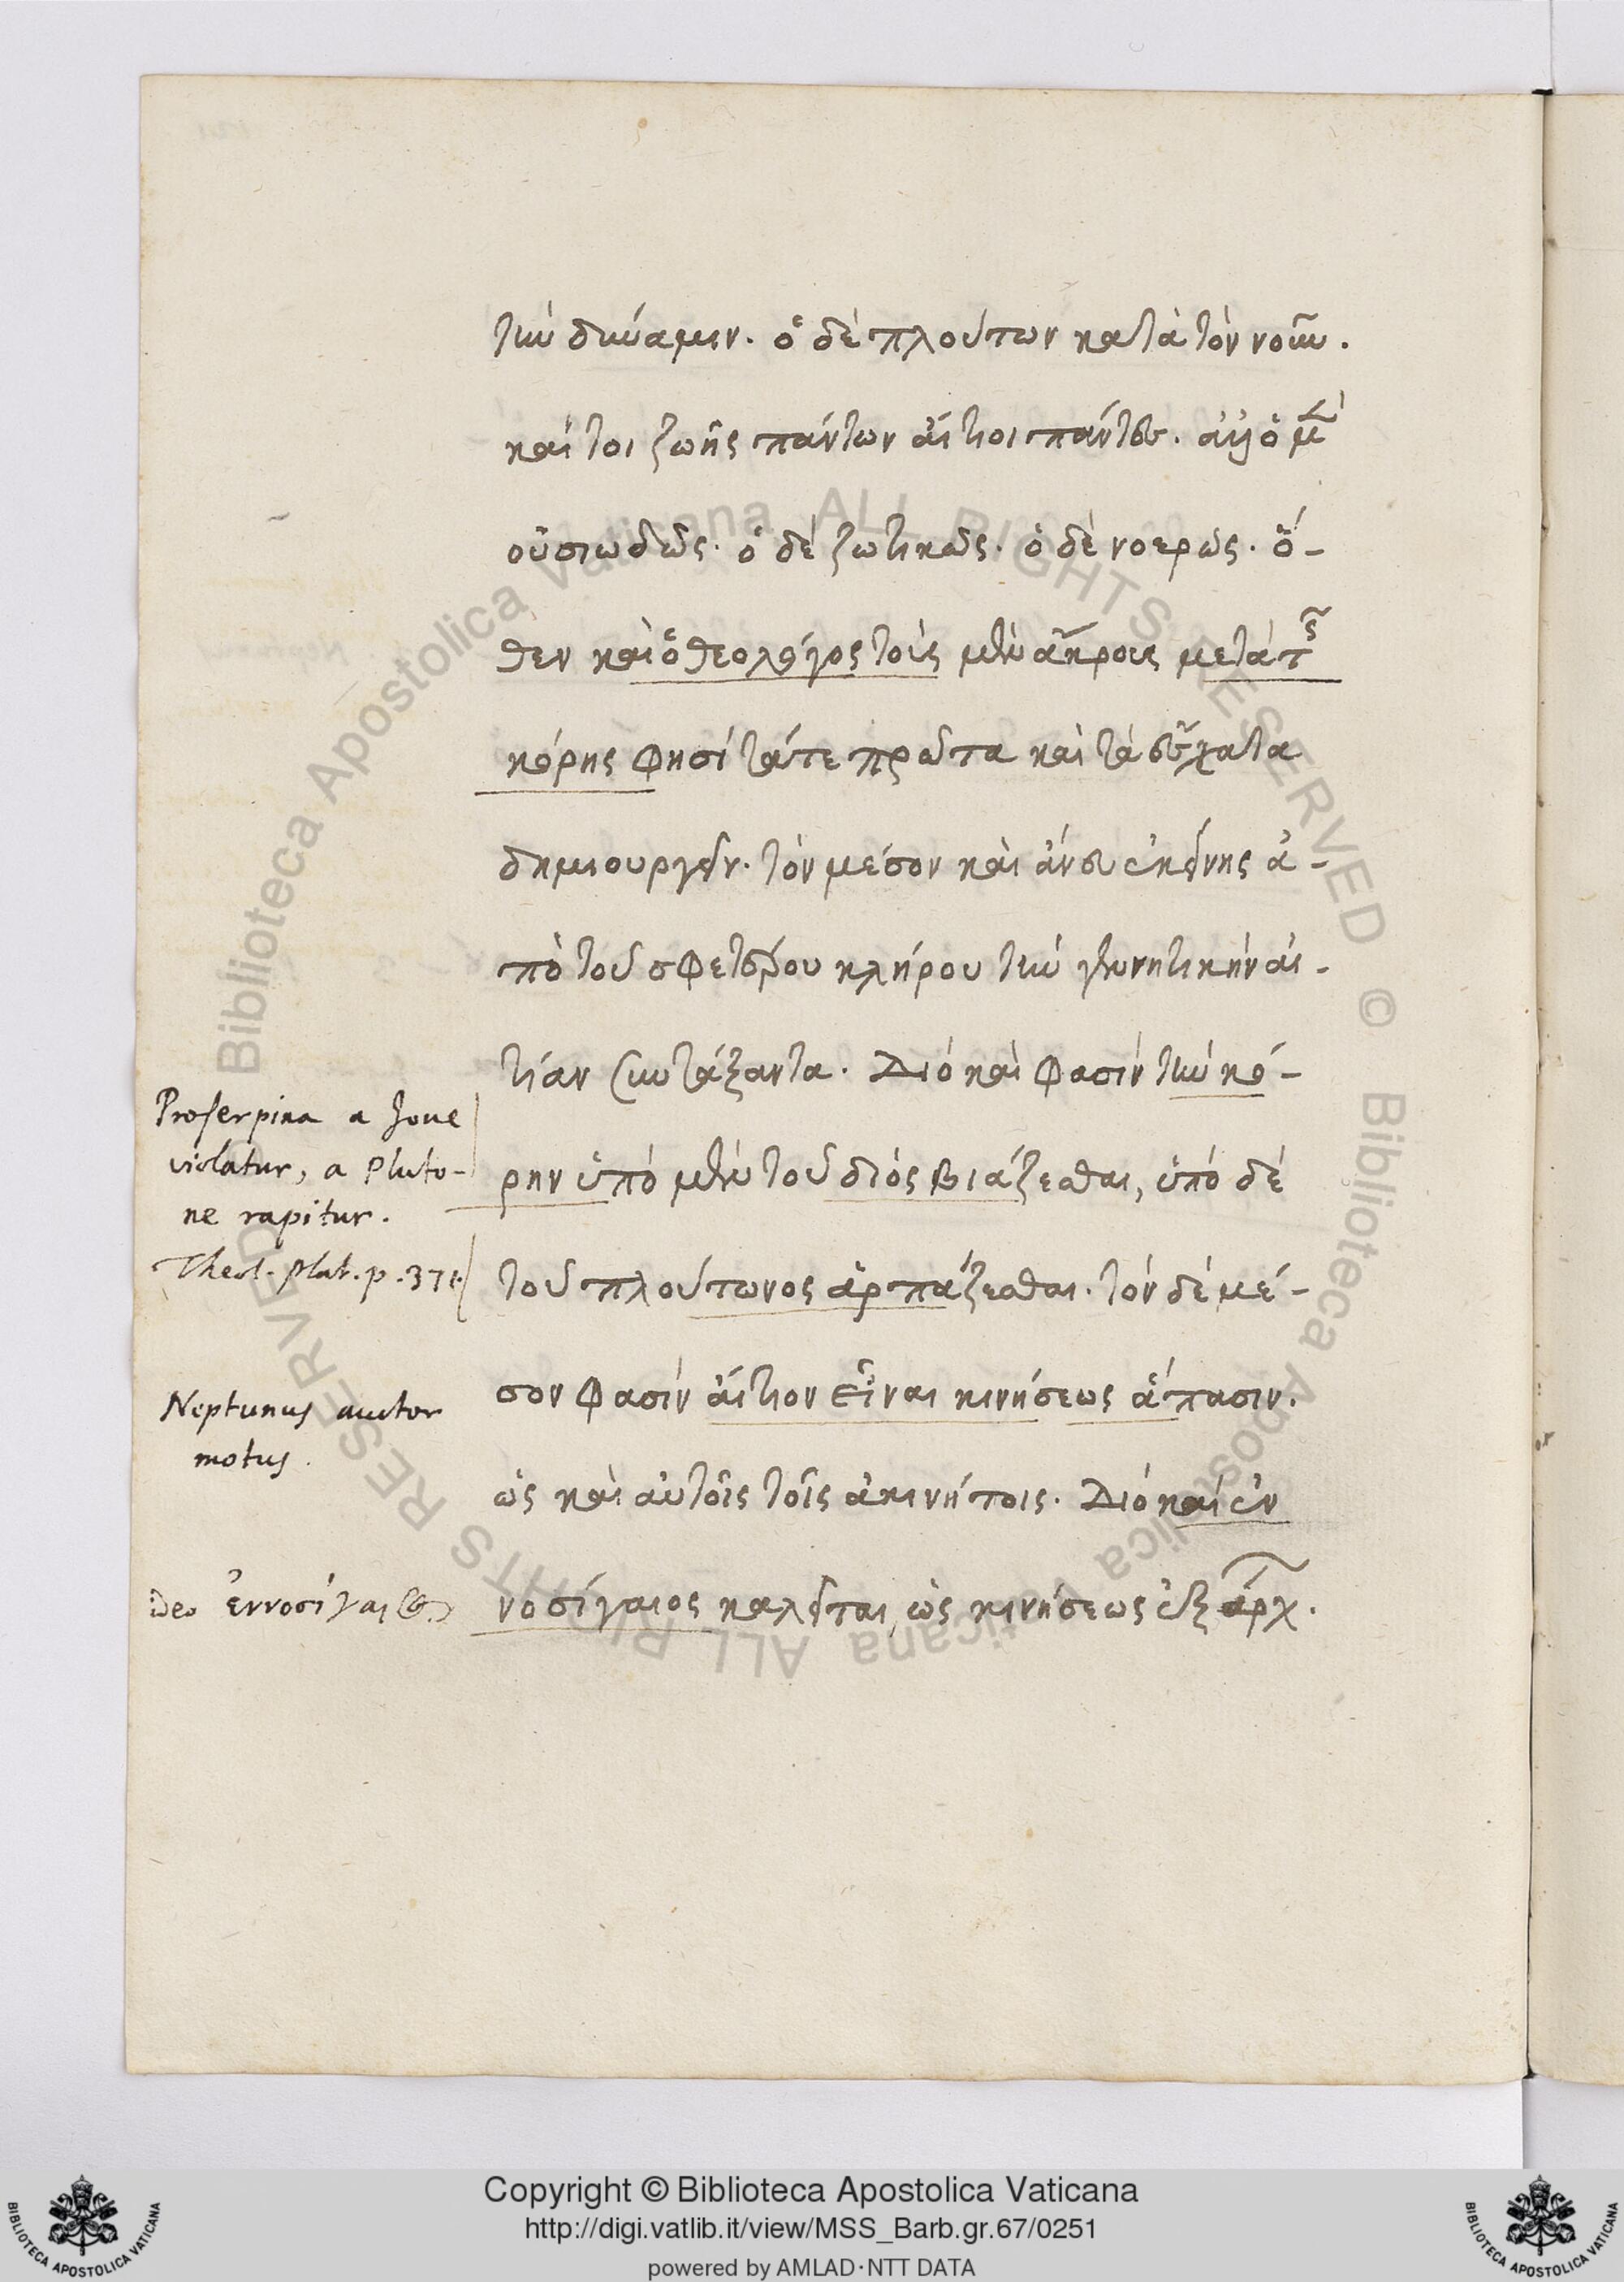 τὴν δύναμιν. ὁ δὲ πλούτων κατὰ τὸν νοῦν.
καίτοι ζωῆς πάντων αἴτιοι πάντες. ἀλλ' ὁ μὲν
οὐσιωδῶς. ὁ δὲ ζωτικῶς. ὁ δὲ νοερῶς. ὅ-
θεν καὶ ὁ θεολόγος τοὺς μὲν ἄκρους μετὰ τῆς
κόρης φησὶ τά τε πρῶτα καὶ τὰ ἔσχατα
δημιουργεῖν. τὸν μέσον καὶ ἄνευ ἐκείνης ἀ-
πὸ τοῦ σφετέρου κλήρου τὴν γεννητικὴν αἰ-
τίαν συντάξαντα. Διὸ καὶ φασὶν τὴν κό-
ρην ὑπὸ μὲν τοῦ διὸς βιάζεσθαι, ὑπὸ δὲ
τοῦ πλούτωνος ἁρπάζεσθαι. τὸν δὲ μέ-
σον φασὶν αἴτιον εἶναι κινήσεως ἅπασιν.
ὡς καὶ αὐτοῖς τοῖς ἀκινήτοις. Διὸ καὶ ἐν
νοσίγαιος καλεῖται, ὡς κινήσεως ἐξάρχ.
Proserpina a Joue
violatur, a Pluto-
ne rapitur.
Theol. Plat. p. 371.
Neptunus auctor
motus.
ideo ἐννοσίγαιος
Copyright © Biblioteca Apostolica Vaticana
http://digi.vatlib.it/view/MSS_Barb.gr.67/0251
powered by AMLAD·NTT DATA
Biblioteca Apostolica Vaticana ALL RIGHTS RESERVED © Biblioteca Apostolica Vaticana ALL RIGHTS RESERVED
BIBLIOTECA APOSTOLICA VATICANA
BIBLIOTECA APOSTOLICA VATICANA